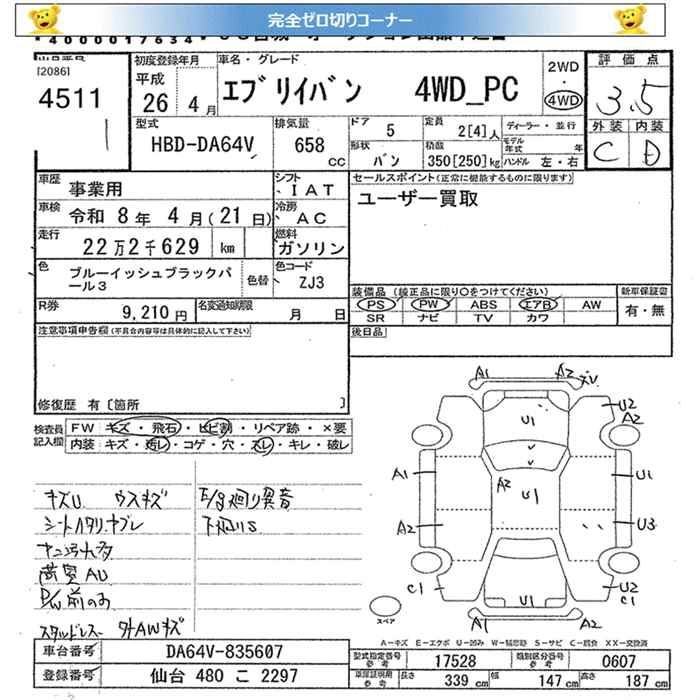 完全ゼロ切りコーナー
4000017634
[2086]
4511
初度登録年月
平成
26年 4月
車名・グレード
エブリイバン 4WD_PC
2WD
・
4WD
評価点
3.5
外装 内装
C D
型式
HBD-DA64V
排気量
658
CC
ドア
5
定員
2[4]人
ディーラー・並行
モデル
年式 年
形状
バン
積数
350[250]kg
ハンドル 左・右
車歴
事業用
シフト
IAT
車検
令和 8年 4月(21日)
冷房
AC
走行
22万2千629 km
燃料
ガソリン
色
ブルーイッシュブラックパ
ール3
色替
色コード
ZJ3
R券
9,210円
名変通知期限
月 日
セールスポイント(正常に機能するものに限ります)
ユーザー買取
装備品(純正品に限り○をつけてください)
新車保証書
PS PW ABS エアB AW
SR ナビ TV カワ
有・無
後日品
注意事項申告欄(不具合内容等は具体的に記入して下さい)
修復歴 有[箇所 ]
検査員
記入欄
FW キズ・飛石・ヒビ割・リペア跡・×要
内装 キズ・汚レ・コゲ・穴・スレ・キレ・破レ
キズU ウスキズ
E/g廻り異音
下廻りS
P/W前のみ
スタッドレス
A1 A2 XV
U1
U2
A2
A1
A2
U1
U1
A2
U3
C1
U2
C1
A1 A2
スペア
A-キズ E-エクボ U-凹み W-補修跡 S-サビ C-腐食 XX-交換済
車台番号
DA64V-835607
登録番号
仙台 480 こ 2297
型式指定番号
参考
17528
類別区分番号
参考
0607
車庫証明用
参考
長さ
339 cm
幅
147 cm
高さ
187 cm